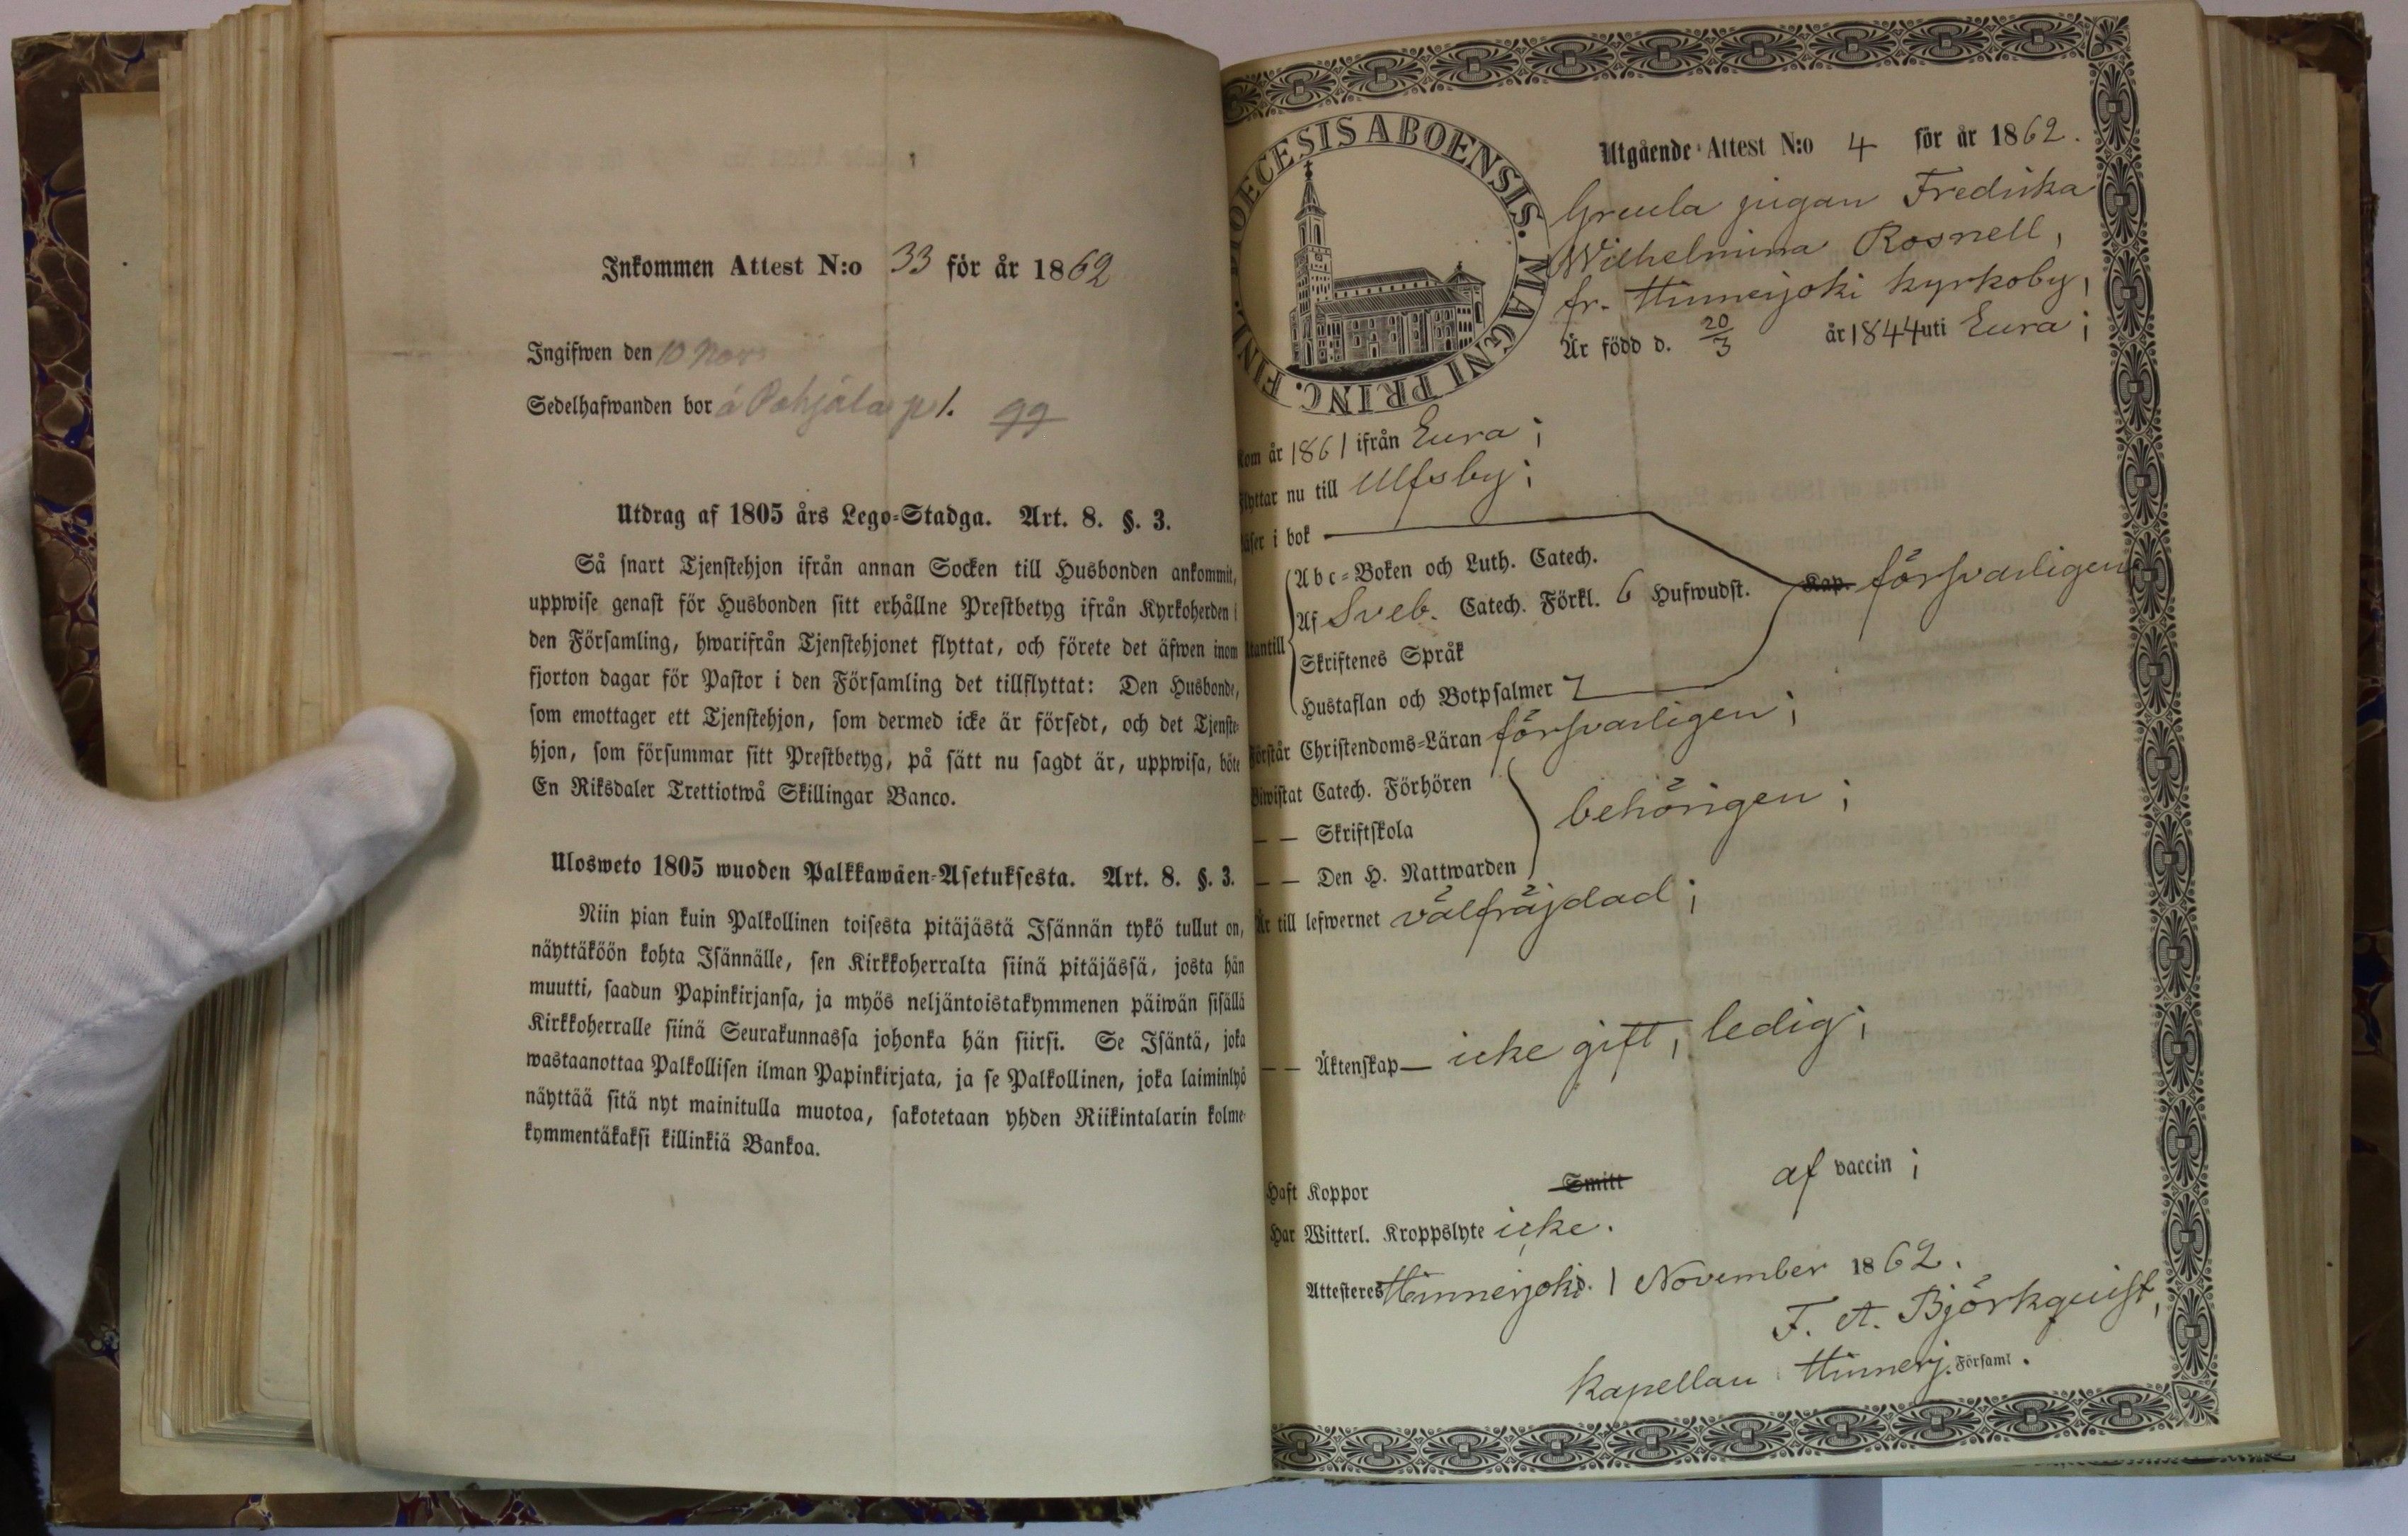 Inkommen Attest N:o 33 för år 1862
Ingifwen den 10 Nov
Sedelhafwanden bor å Pohjala p 1. 99
Utdrag af 1805 års Lego-Stadga. Art. 8. §. 3.
Så snart Tjenstehjon ifrån annan Socken till Husbonden ankommit,
uppwise genast för Husbonden sitt erhållne Prestbetyg ifrån Kyrkoherden i
den Församling, hwarifrån Tjenstehjonet flyttat, och förete det äfwen inom
fjorton dagar för Pastor i den Församling det tillflyttat: Den Husbonde,
som emottager ett Tjenstehjon, som dermed icke är försedt, och det Tjenste-
hjon, som försummar sitt Prestbetyg, på sätt nu sagdt är, uppwisa, böte
En Riksdaler Trettiotwå Skillingar Banco.
Ulosweto 1805 wuoden Palkkawäen-Asetuksesta. Art. 8. §. 3.
Niin pian kuin Palkollinen toisesta pitäjästä Isännän tykö tullut on,
näyttäköön kohta Isännälle, sen Kirkkoherralta siinä pitäjässä, josta hän
muutti, saadun Papinkirjansa, ja myös neljäntoistakymmenen päiwän sisällä
Kirkkoherralle siinä Seurakunnassa johonka hän siirsi. Se Isäntä, joka
wastaanottaa Palkollisen ilman Papinkirjata, ja se Palkollinen, joka laiminlyö
näyttää sitä nyt mainitulla muotoa, sakotetaan yhden Riikintalarin kolme-
kymmentäkaksi killinkiä Bankoa.
DIOECESIS ABOENSIS. MAGNI PRINC. FINL.
Utgående Attest N:o 4 för år 1862.
pigan Fredrika
Wilhelmina Rosnell,
fr. Hinnerjoki kyrkoby,
Är född d. 20/3 år 1844 uti Eura;
Kom år 1861 ifrån Eura;
Flyttar nu till Ulfsby;
Läser i bok
Abc-Boken och Luth. Catech.
Utantill Af Sveb. Catech. Förkl. 6 Hufwudst. Kap. försvarligen
Skriftenes Språk
Hustaflan och Botpsalmer 7
Förstår Christendoms-Läran försvarligen;
Biwistat Catech. Förhören
— — Skriftskola behörigen;
— — Den H. Nattwarden
Är till lefwernet välfräjdad;
— — Äktenskap — icke gift, ledig;
Haft Koppor Smitt af vaccin;
Har Witterl. Kroppslyte icke.
Attesteres Hinnerjoki d. 1 November 1862.
F. A. Björkquist,
Kapellan i Hinnerj. Församl.